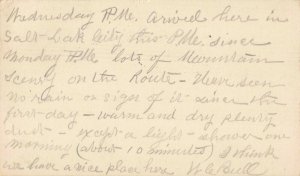 Wednesday P.Me. Arived here in
Salt-Lak City this P.Me. since
Monday P.Me lots of Mountain
Scenry on the Route - Have seen
no rain or sign of it since the
first-day - warm and dry plenty
dust - except a light-shower one
morning (about 10 minutes) I think
we have a nice place here W.C. Bell